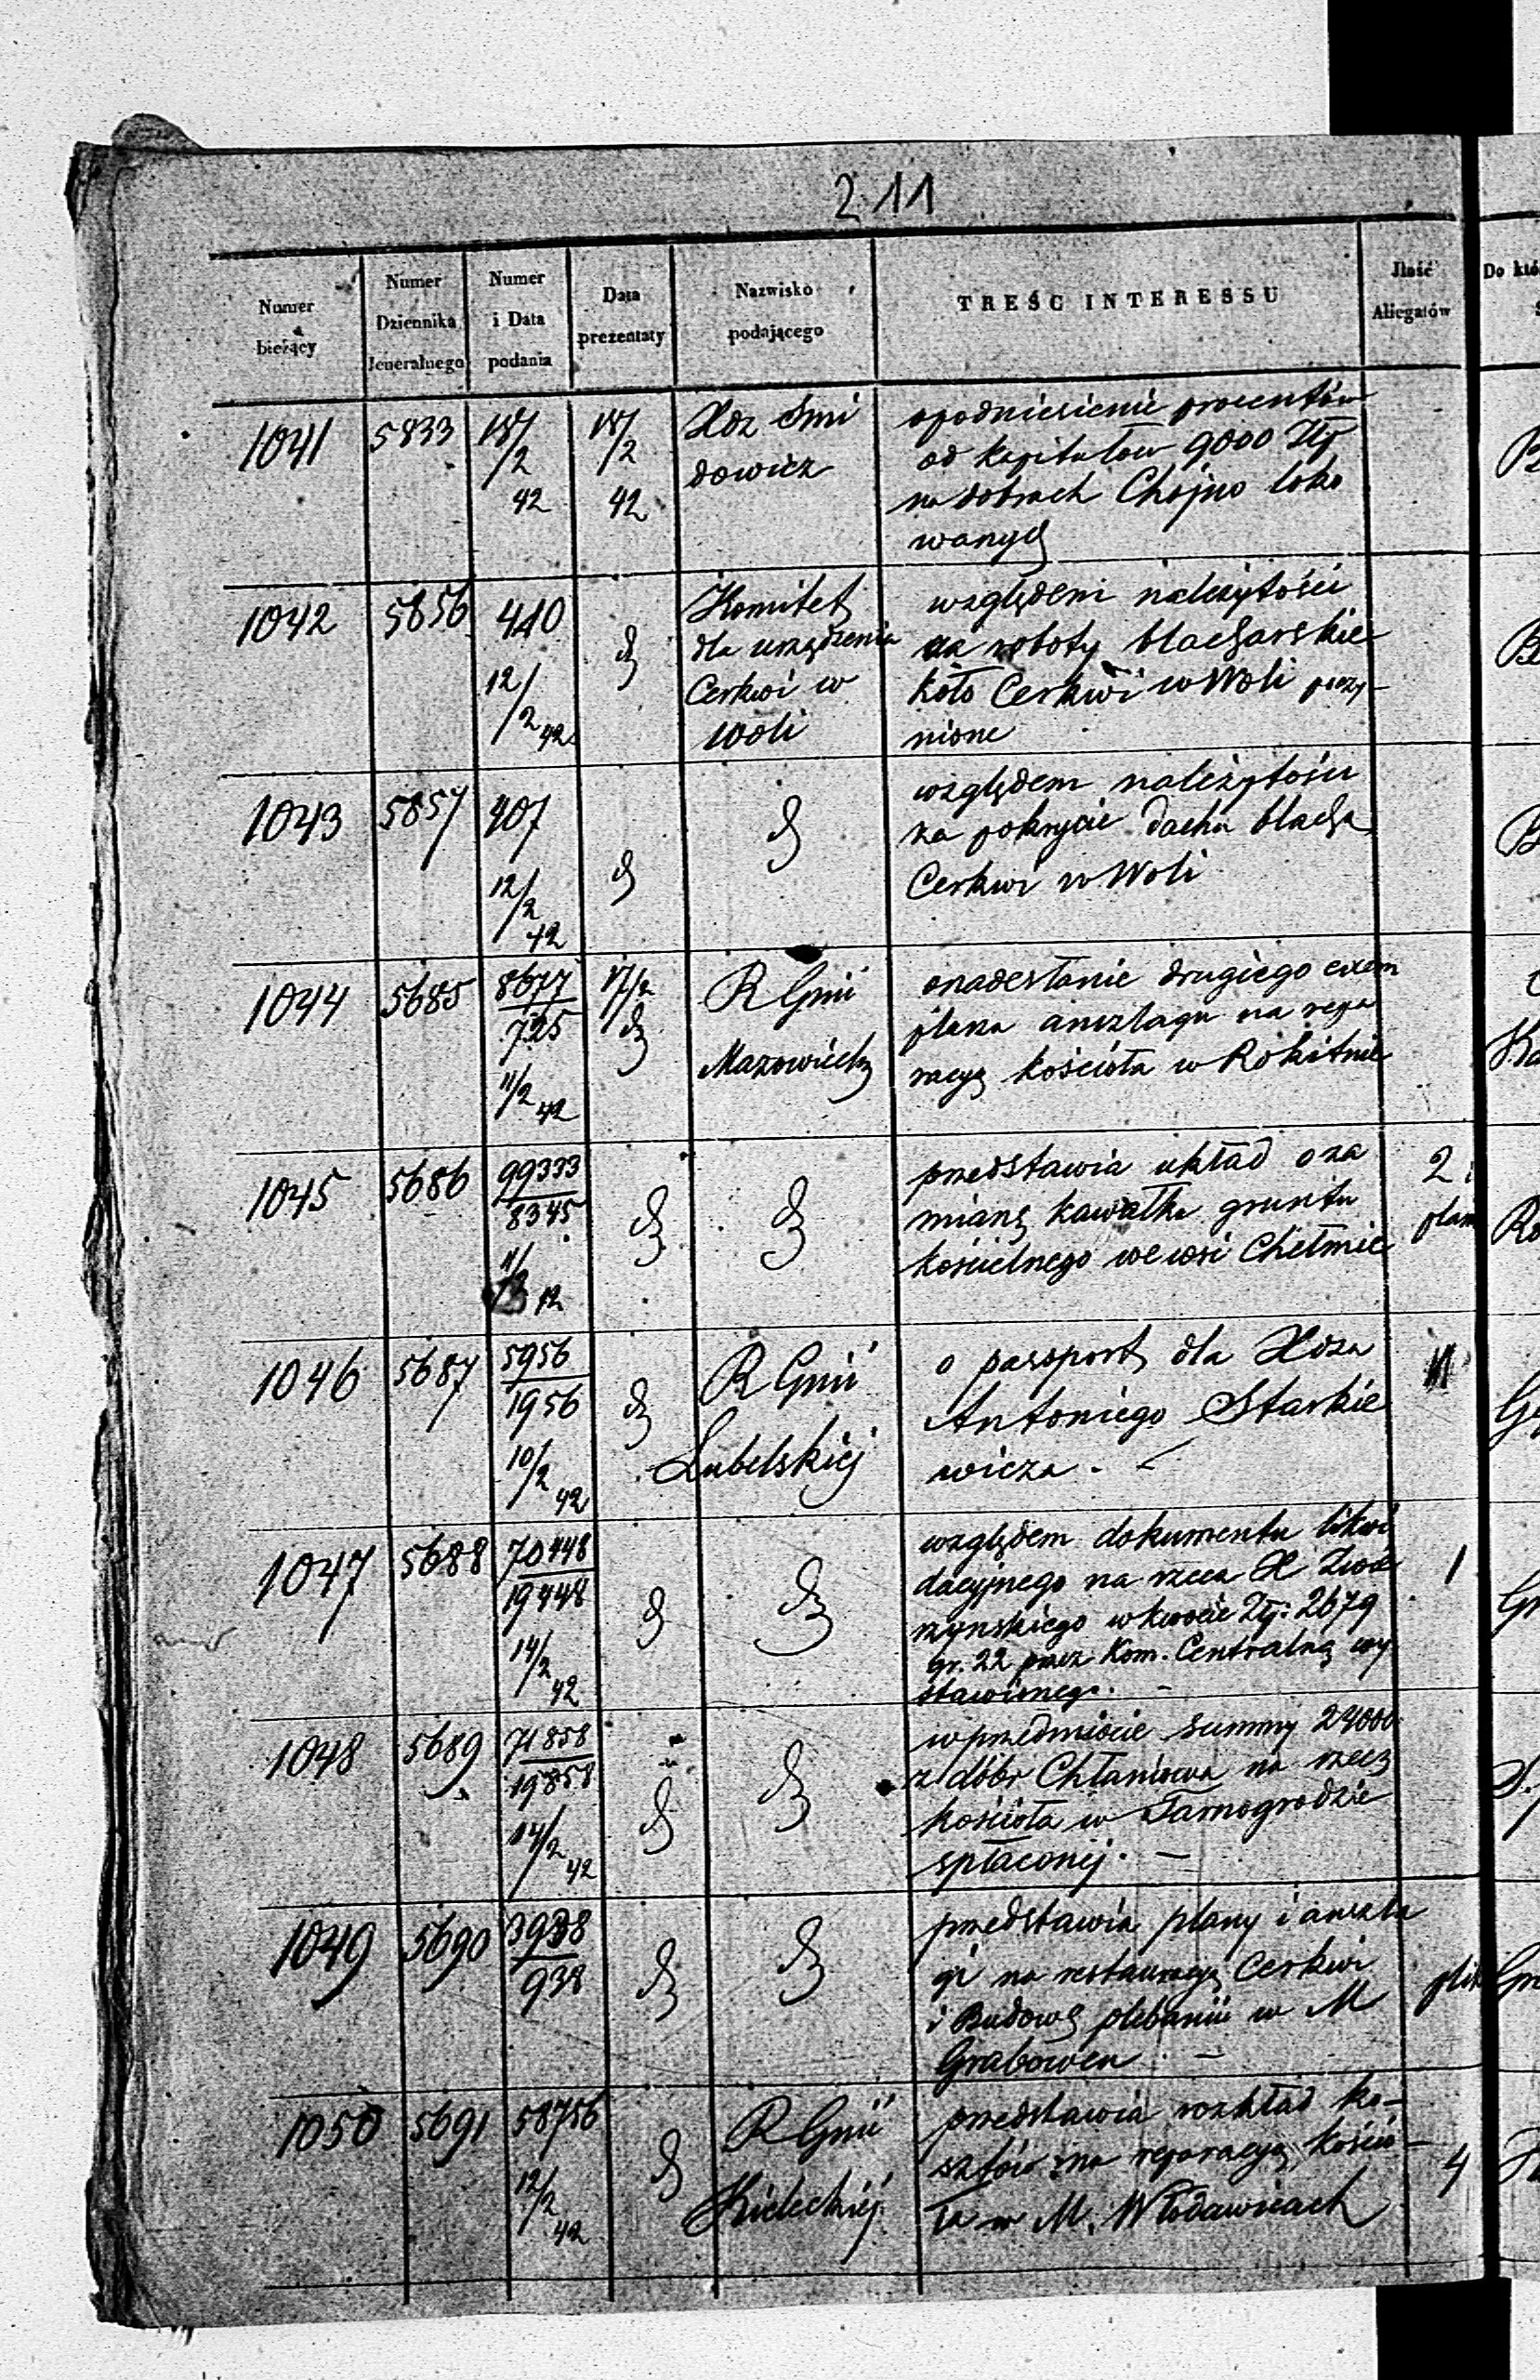 211
Numer bieżący
Numer Dziennika Jeneralnego
Numer i Data podania
Data prezentaty
Nazwisko podającego
TREŚC INTERESSU
Ilość Allegatów
Do któ
1041 5833 18/2 42 18/2 42
Xdz Smi
dowicz
opodniesienie procentów
od kapitałów 9000 Złp
na dobrach Chojno loko
wanych
1042 5856 440 12/2 42 d
Komitet
dla urządzenia
Cerkwi w
Woli
względem należytości
za roboty blacharskie
koło Cerkwi w Woli poczy-
nione
1043 5857 407 12/2 42 d
d
względem należytości
za pokrycie dachu blachą
Cerkwi w Woli
1044 5685 8677/725 11/2 42 17/2 d
R Gnii
Mazowieckij
onadesłanie drugiego exem
plarza anszlagu na repa
racyą kościoła w Rokitnie
1045 5686 99333/8345 11/2 42 d
d
przedstawia układ o za
mianę kawałka gruntu
kościelnego we wsi Chełmie
2 i
plan
1046 5687 5956/1956 10/2 42 d
R Gnii
Lubelskiej
o passport dla Xdza
Antoniego Starkie
wicza. -
1047 5688 70448/19448 14/2 42 d
d
względem dokumentu likwi
dacyjnego na rzecz X
w kwocie Złp. 2679
gr. 22 przez Kom. Centralną wy
stawionego. -
1
1048 5689 71858/19858 14/2 42 d
d
w przedmiocie summy 24000
z dóbr Chłaniowa na rzecz
kościoła w Tarnogrodzie
spłaconej. -
1049 5690 3938/938 d
d
przedstawia plany i anszla
gi na restauracyą Cerkwi
i Budowę plebanii w M
Grabowcu. -
plik
1050 5691 58756 12/2 42 d
R Gnii
Kieleckiej
przedstawia rozkład ko-
sztów na reparacyą kościo-
ła w M. Włodawicach
4